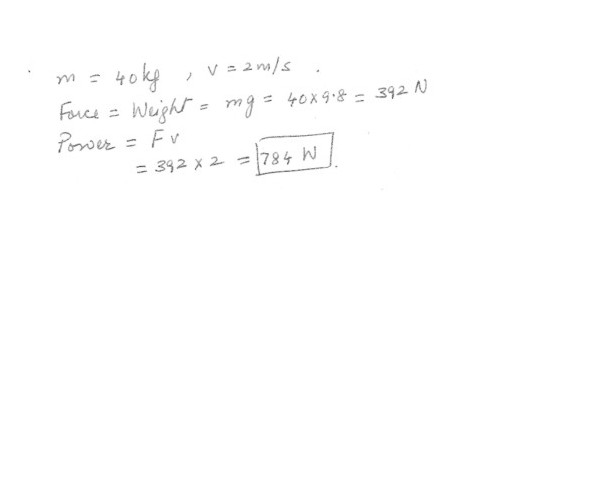 m = 40kg , v = 2m/s .
Force = Weight = mg = 40×9.8 = 392 N
Power = Fv
= 392 × 2 = 784 W .